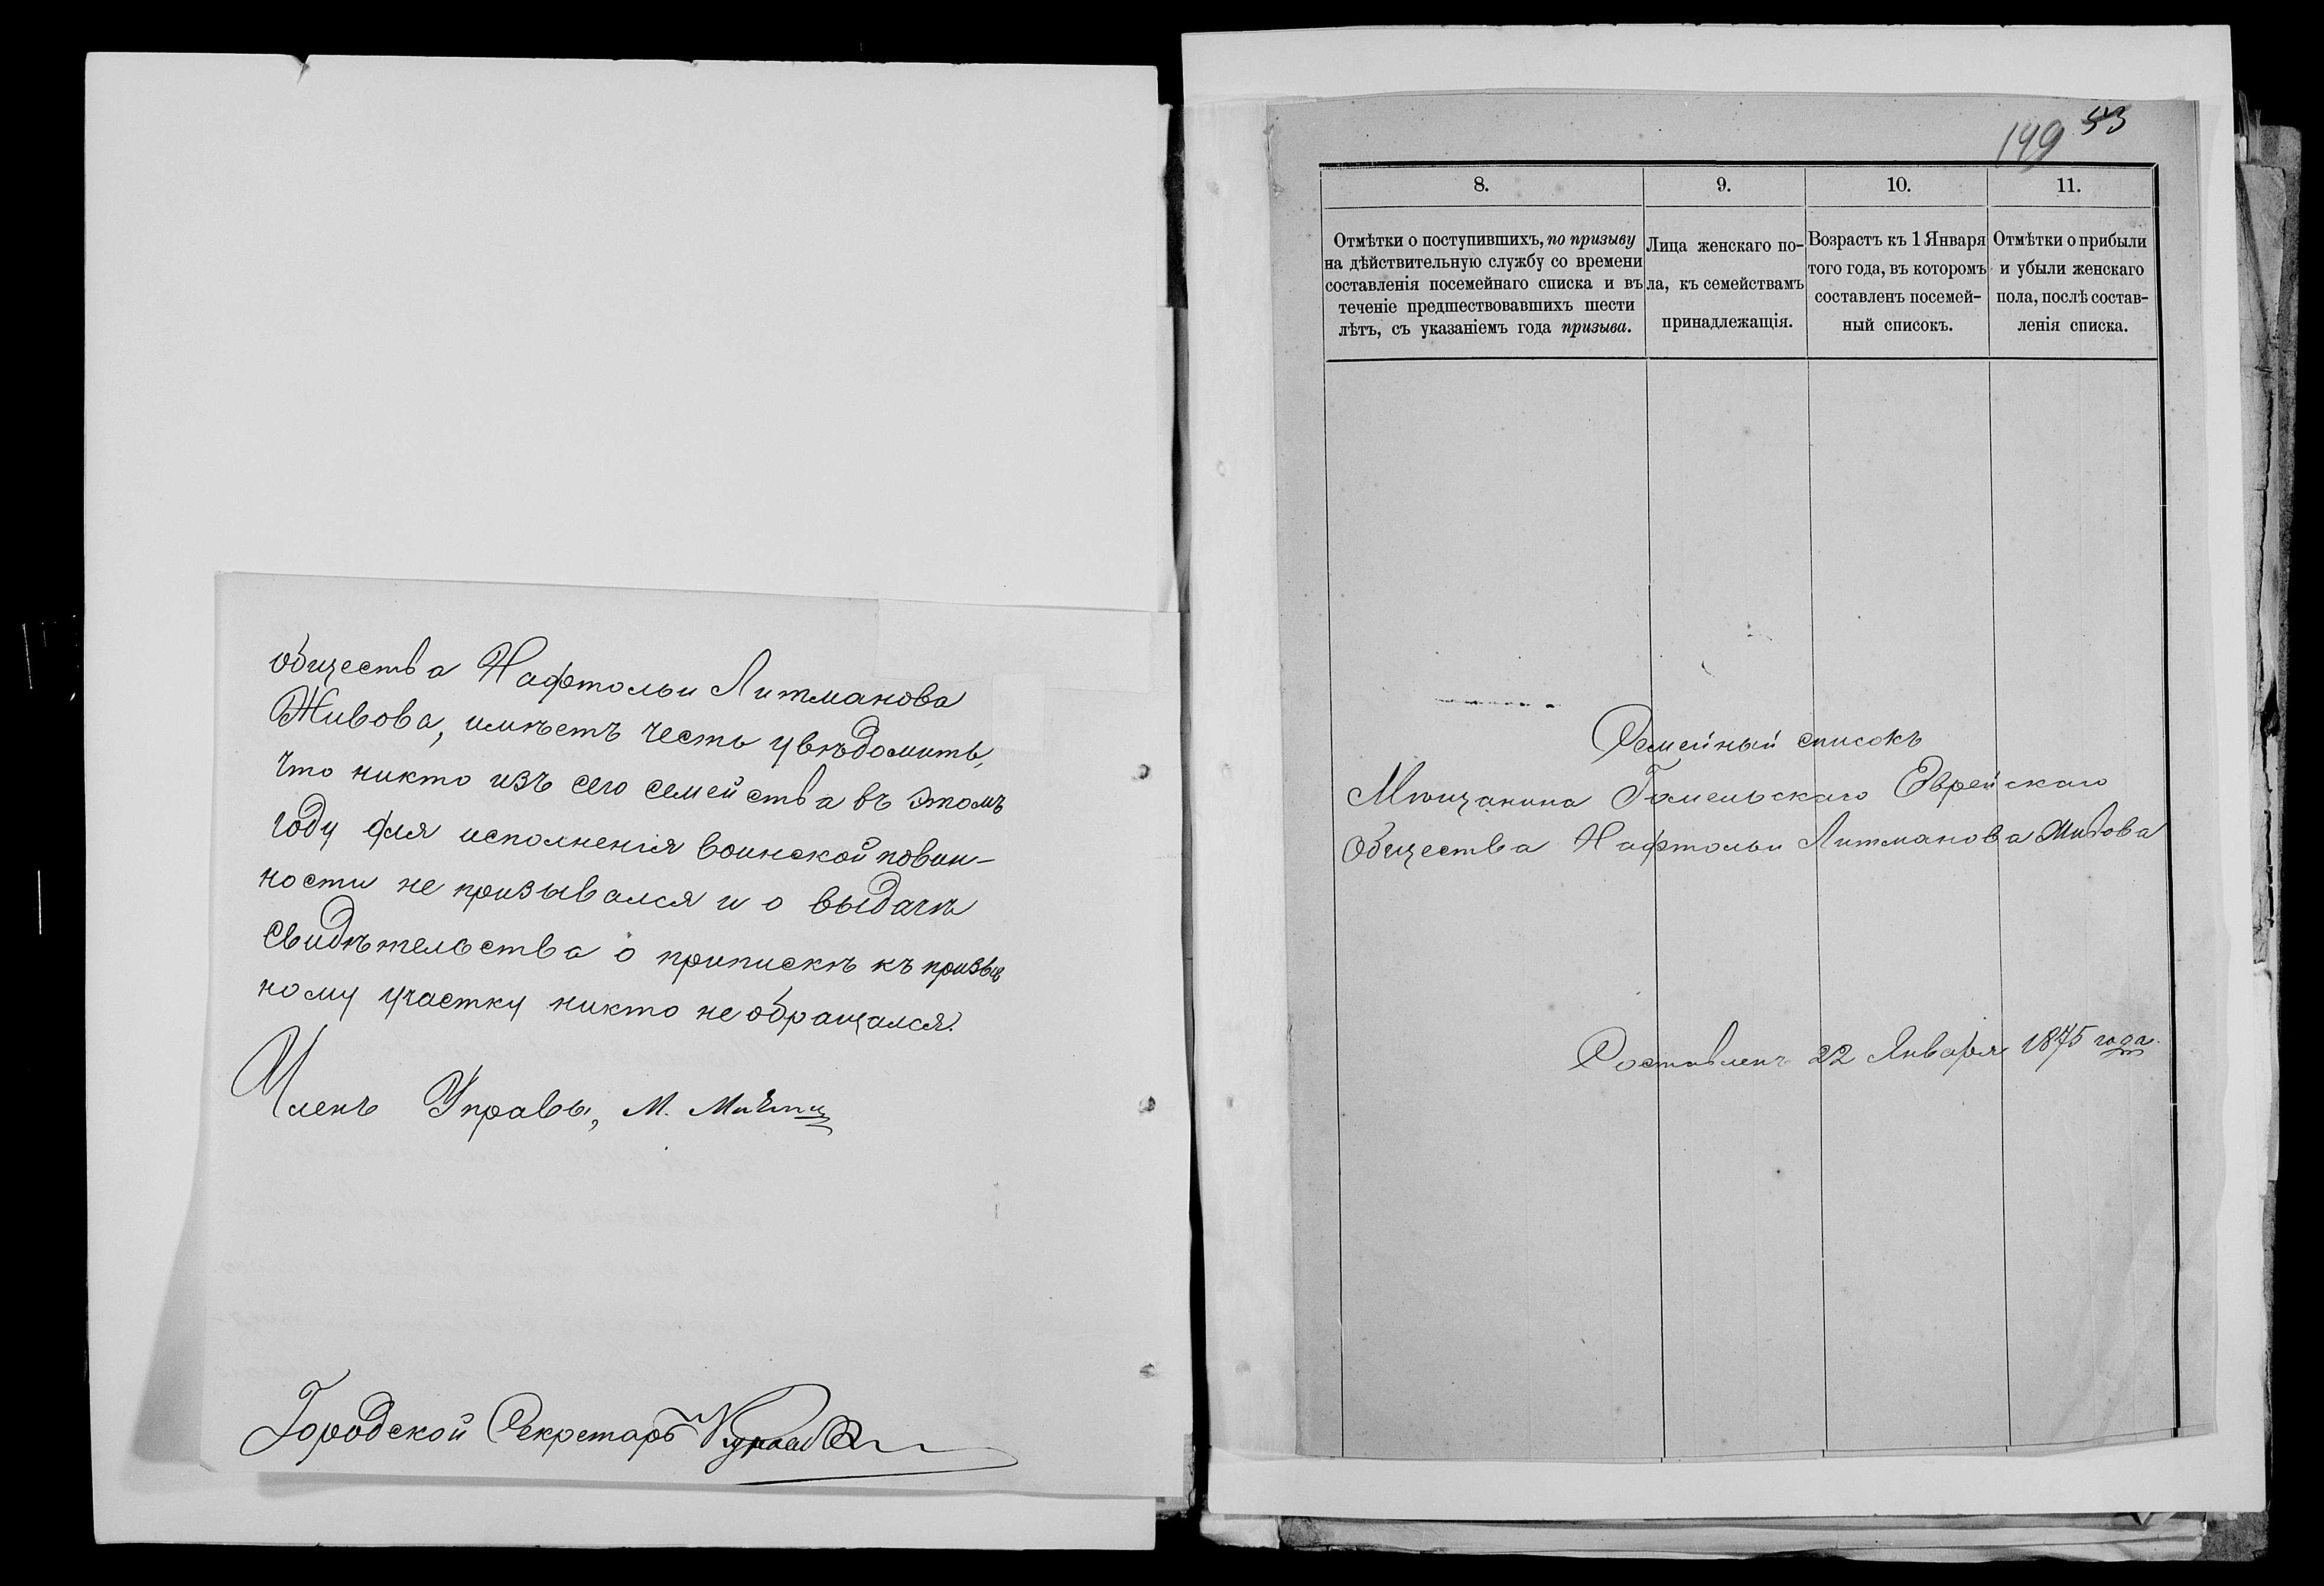 общества Нафтольи Литманова
Живова, имѣетъ честь увѣдомить,
что никто изъ сего семейства въ этомъ
году для исполненія воинской повин-
ности не призывался и о выдачѣ
свидѣтельства о припискѣ къ призыв
ному участку никто не обращался.
Членъ Управы, М.
Городской Секретарь
149 53
8. 9. 10. 11.
Отмѣтки о поступившихъ, по призыву
на дѣйствительную службу со времени
составленія посемейнаго списка и въ
теченіе предшествовавшихъ шести
лѣтъ, съ указаніемъ года призыва.
Лица женскаго по-
ла, къ семействамъ
принадлежащія.
Возрастъ къ 1 Января
того года, въ которомъ
составленъ посемей-
ный списокъ.
Отмѣтки о прибыли
и убыли женскаго
пола, послѣ состав-
ленія списка.
Семейный списокъ
Мѣщанина Гомельскаго Еврейскаго
Общества Нафтольи Литманова Живова
Составленъ 22 Января 1875 года.